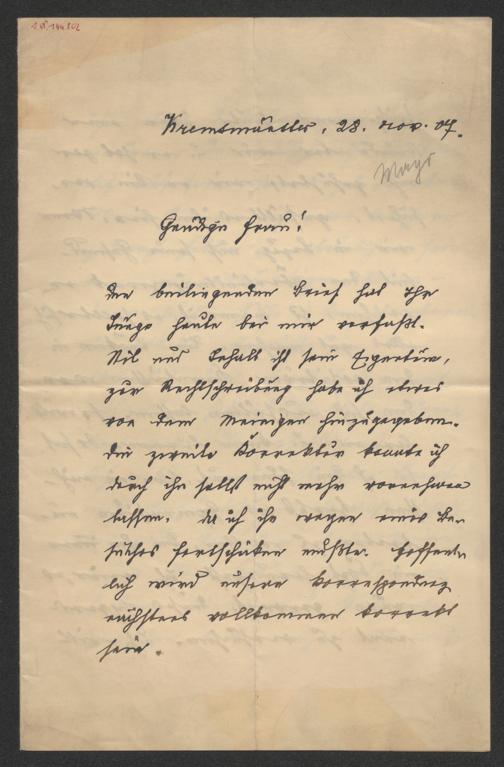 Kremsmünster, 28. Nov. 07.
Mayr
Gnädige Frau!
Den beiliegenden Brief hat Ihr
Junge heute bei mir verfaßt.
Stil und Inhalt ist sein Eigentum,
zur Rechtschreibung habe ich etwas
von dem Meinigen hinzugegeben.
Die zweite Korrektur konnte ich
durch ihn selbst nicht mehr vornehmen
lassen, da ich ihn wegen eines Be-
suches fortschicken mußte. Hoffent-
lich wird unsere Korrespondenz
nächstens vollkommen korrekt
sein.